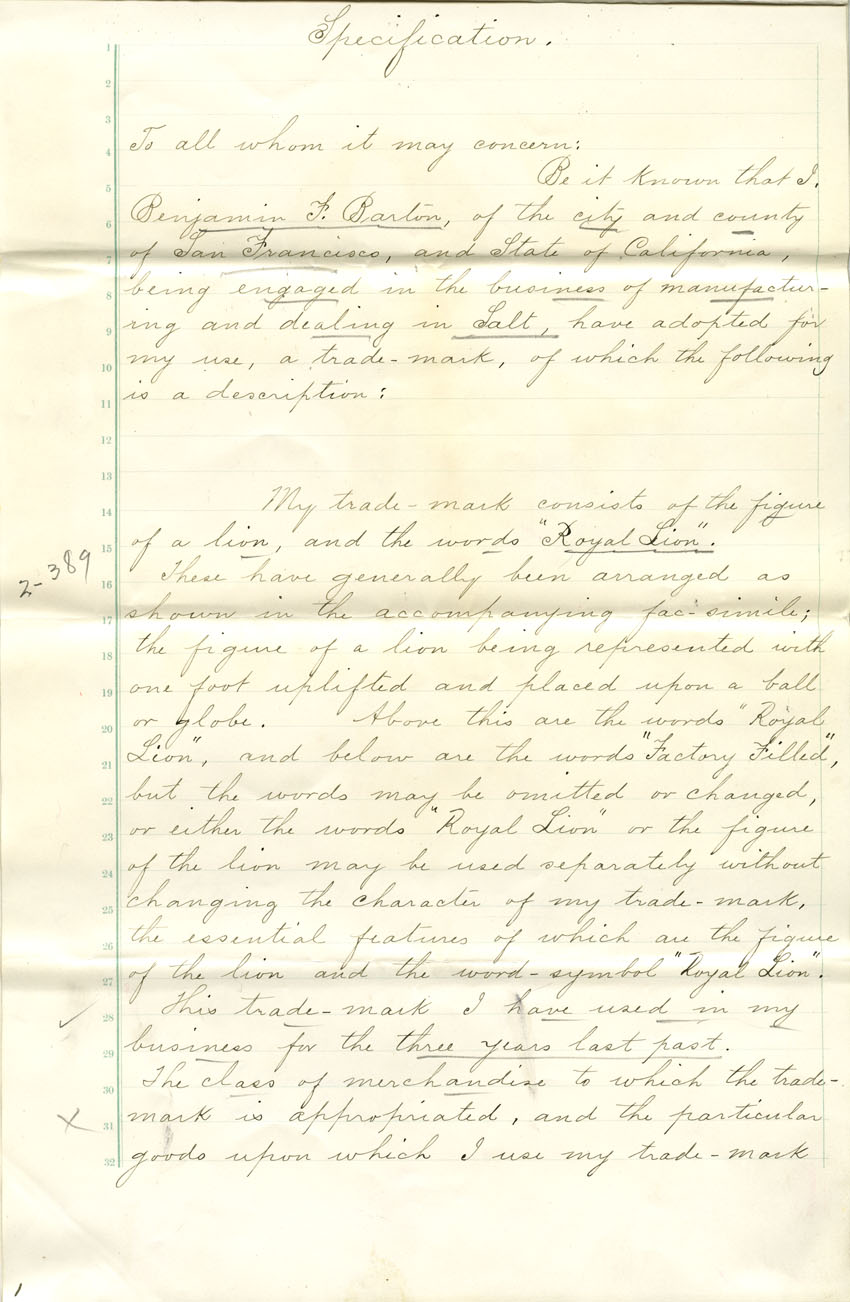 Specification.
1
2
3
To all whom it may concern:
4
Be it known that I,
5
Benjamin F. Barton, of the city and county
6
of San Francisco, and State of California,
7
being engaged in the business of manufactur-
8
ing and dealing in Salt, have adopted for
9
my use, a trade-mark, of which the following
10
is a description:
11
12
13
My trade-mark consists of the figure
14
of a lion, and the words "Royal Lion".
15
2-389
These have generally been arranged as
16
shown in the accompanying fac-simile;
17
the figure of a lion being represented with
18
one foot uplifted and placed upon a ball
19
or globe. Above this are the words "Royal
20
Lion", and below are the words "Factory Filled",
21
but the words may be omitted or changed,
22
or either the words "Royal Lion" or the figure
23
of the lion may be used separately without
24
changing the character of my trade-mark,
25
the essential features of which are the figure
26
of the lion and the word-symbol "Royal Lion".
27
This trade-mark I have used in my
28
business for the three years last past.
29
The class of merchandise to which the trade-
30
mark is appropriated, and the particular
31
goods upon which I use my trade-mark
32
1